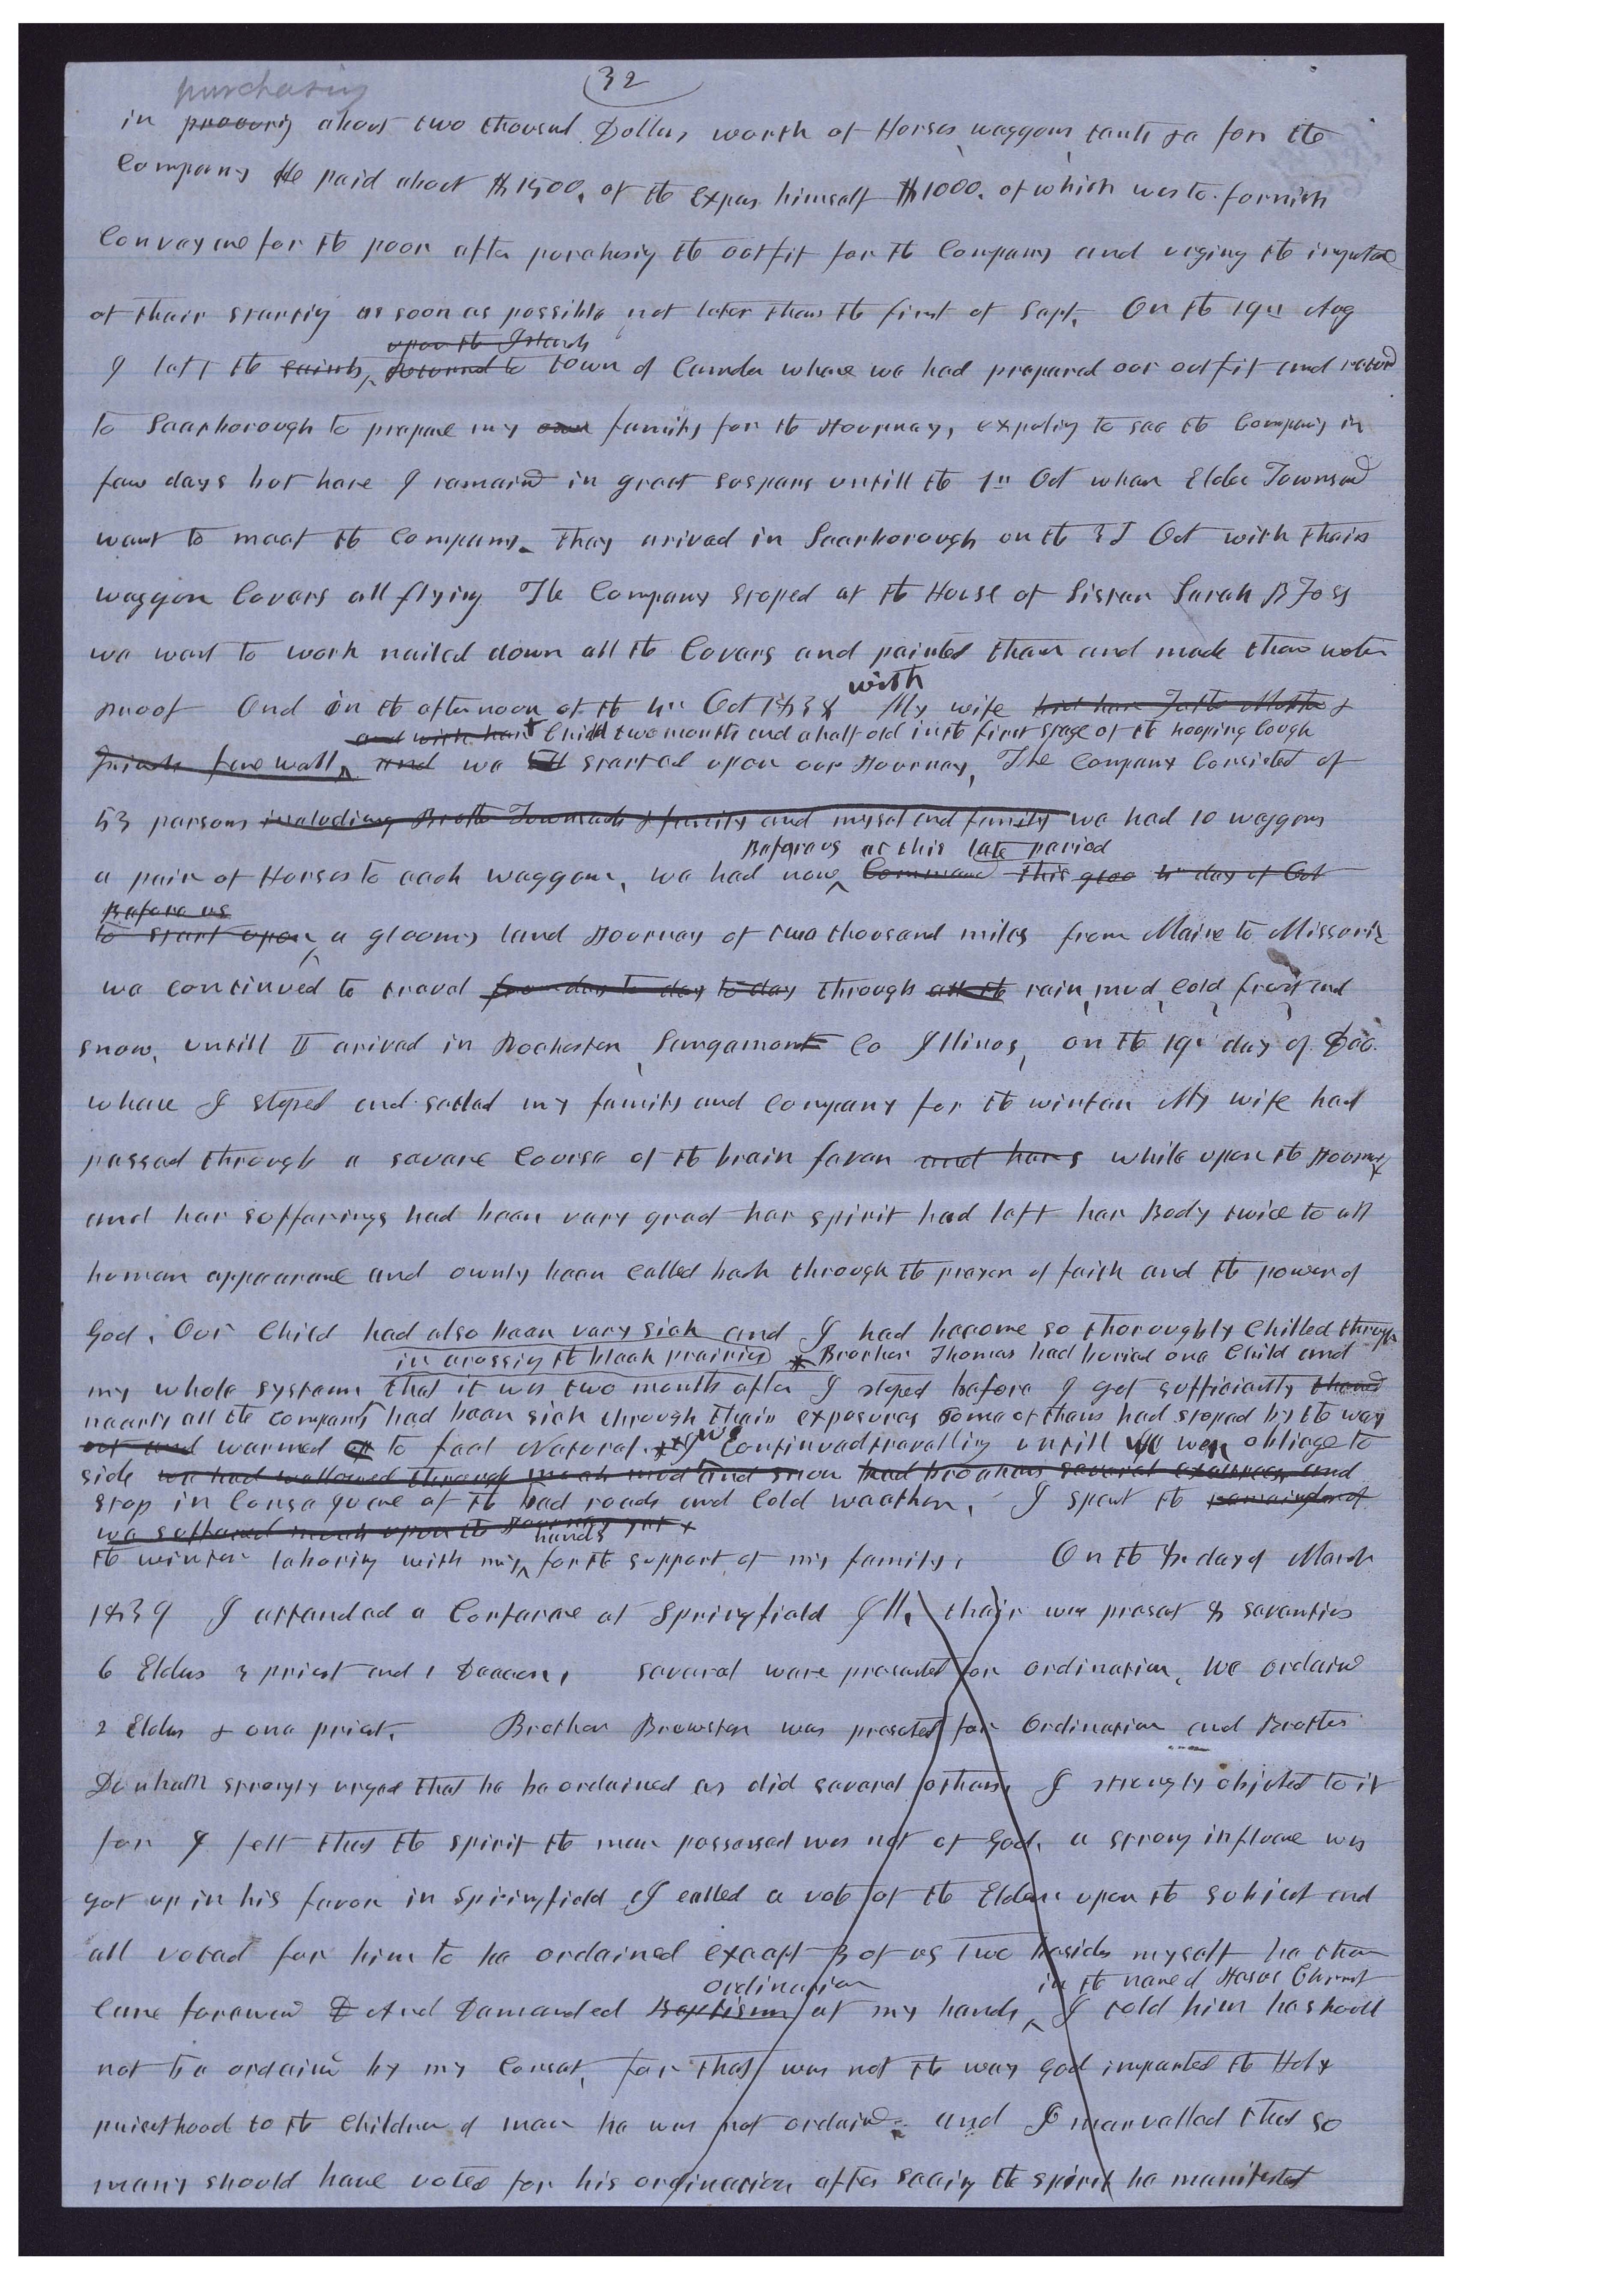 32
purchasing
in procuring about two thousand Dollars worth of Horses, waggons, tents &c for the
Company He paid about $1500. of the Expens himself $1000. of which was to furnish
Convayance for the poor after purchasing the outfit for the Company and urging the importance
of their starting as soon as possible not later than the first of Sept. On the 19th Aug
upon the Islands
I left the saints, returned to town of Camden whare we had prepared our outfit and returnd
to Scarborough to prepare my own family for the Journey, expecting to see the Company in
few days but here I remaind in great suspens untill the 1st Oct when Elder Townsend
went to meet the Company. They arived in Scarborough on the 3d Oct with their
waggon Covers all flying The Company stoped at the House of Sister Sarah B Foss
we went to work nailed down all the Covers and painted them and made them water
with
proof And in the afternoon of the 4th Oct 1838 My wife bid her Father Mother &
and with her Child two months and a half old in the first stage of the hooping Cough
friends fare well, and we started upon our Journey, The Company Consisted of
53 persons including Brother Townsend & family and myself and family we had 10 waggons
Before us at this late period
a pair of Horses to each waggon, we had now Commenced this 4th day of Oct
Before us
to start upon a gloomy land Journey of two thousand miles from Maine to Missouri
we continued to travel from day to day to day through all the rain, mud, cold, frost and
snow, untill I arived in Rochester, Sangamont Co Illinos, on the 19th day of Dec.
whare I stoped and setled my family and Company for the winter My wife had
passed through a severe Course of the brain fever and hers while upon the Journey
and her sufferings had been very great her spirit had left her Body twice to all
human appearance and ownly been Called back through the prayer of faith and the power of
God. Our Child had also been very sick and I had become so thoroughly Chilled through
in crossing the bleak prairies * Brother Thomas had buried one Child and
my whole system that it was two month after I stoped before I got sufficiently thawed
nearly all the Company had been sick through their exposures some of them had stoped by the way
out and warmed to feel Natural. we Continued travelling untill we were obliege to
side we had wallowed through much mud and snow had broken several extrees and
stop in Consequence of the bad roads and Cold weather. I spent the remainder of
we suffered much upon the Journey yet
hands
the winter laboring with my for the support of my family. On the day of March
1839 I attended a Conference at Springfield Ill. their were present 8 seventies
6 Elders 3 priest and 1 Deacon, several ware presented for ordination, We ordaind
2 Elders & one priest. Brother Brewster was presented for Ordination and Brother
Dunham strongly urged that he be ordained as did several others. I strongly objected to it
for I felt that the spirit the man possessed was not of God. a strong influence was
got up in his favor in Springfield I called a vote of the Elders upon the subject and
all voted for him to be ordained except 3 of us Two besides myself he then
ordination in the name of Jesus Christ
Came foreward And Demanded Baptism at my hands, I told him he should
not be ordaind by my Consent, for that was not the way God imparted the Holy
priesthood to the Children of men he was not ordaind. and I marvelled that so
many should have voted for his ordination after seeing the spirit he manifested